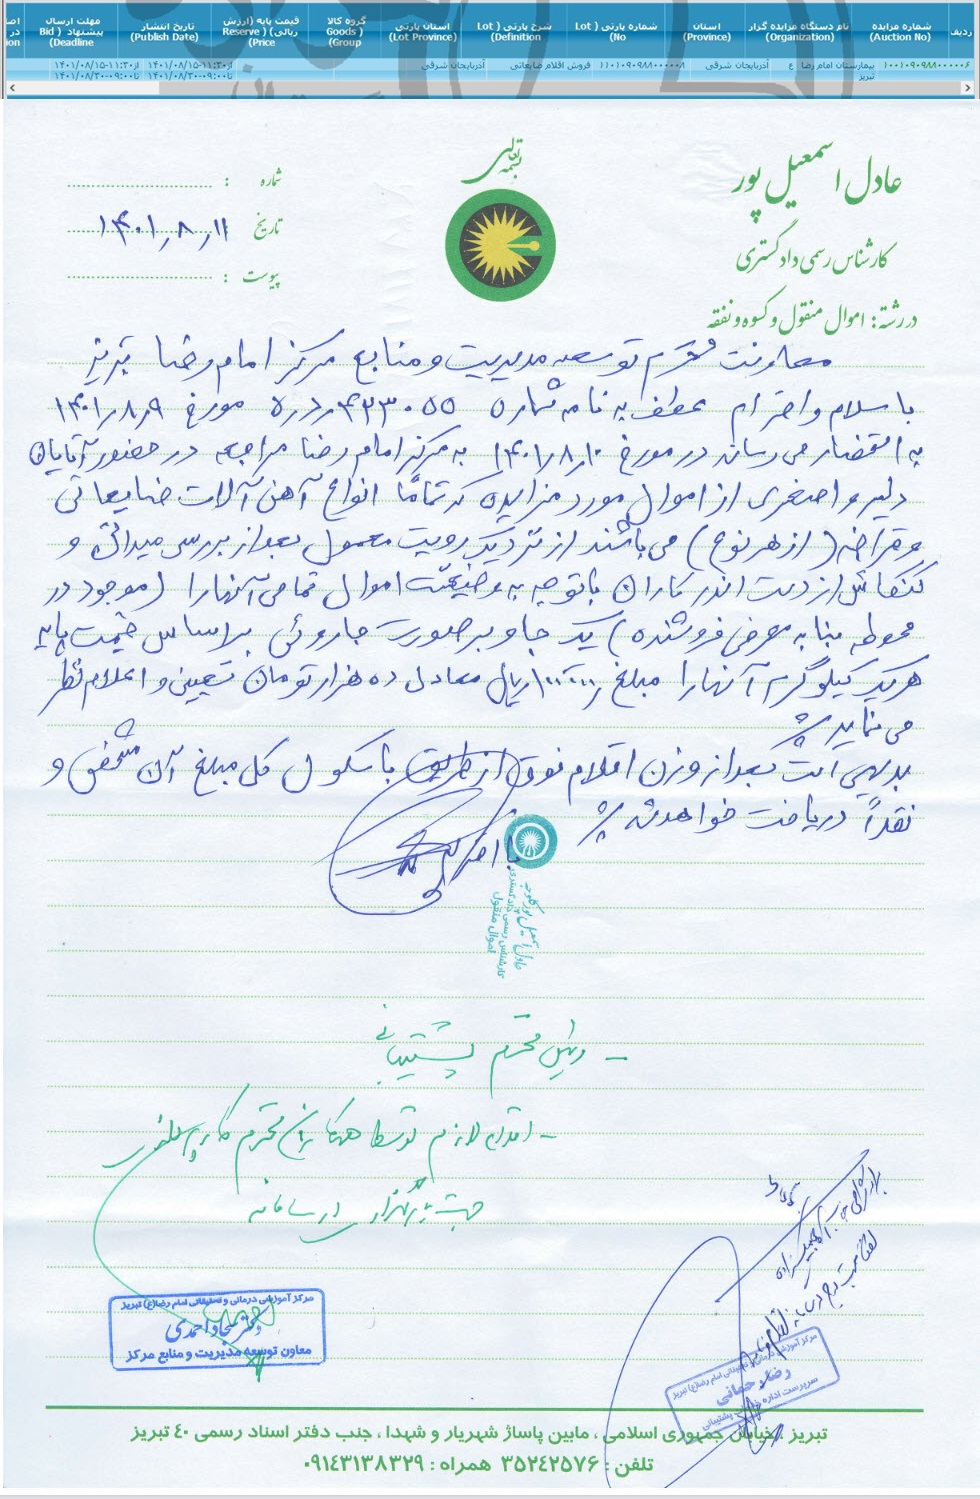 ردیف
شماره مزایده (Auction No)
نام دستگاه مزایده گزار (Organization)
استان (Province)
شماره پارتی ( Lot No)
شرح پارتی ( Lot Definition)
استان پارتی (Lot Province)
گروه کالا ( Goods Group)
قیمت پایه (ارزش ریالی) ( Reserve Price)
تاریخ انتشار (Publish Date)
مهلت ارسال پیشنهاد ( Bid Deadline)
۱۰۰۱۰۹۰۹۸۸۰۰۰۰۰۶
بیمارستان امام رضا ع تبریز
آذربایجان شرقی
۱۱۰۱۰۹۰۹۸۸۰۰۰۰۰۸
فروش اقلام ضایعاتی
آذربایجان شرقی
از ۱۱:۳۰-۱۴۰۱/۰۸/۱۵
تا ۰۹:۰۰-۱۴۰۱/۰۸/۳۰
از ۱۱:۳۰-۱۴۰۱/۰۸/۱۵
تا ۰۹:۰۰-۱۴۰۱/۰۸/۳۰
بسمه تعالی
عادل اسمعیل پور
کارشناس رسمی دادگستری
در رشته: اموال منقول و کسوه و نفقه
شماره :
تاریخ ۱۴۰۱٫۸٫۱۱
پیوست :
معاونت محترم توسعه مدیریت و منابع مرکز امام رضا تبریز
با سلام و احترام عطف به نامه شماره مورخ ۱۴۰۱٫۸٫۹
به استحضار می رساند در مورخ ۱۴۰۱٫۸٫۱۰ به مرکز امام رضا مراجعه در حضور آقایان
دلیر و اصغری از اموال مورد مزایده که تماماً انواع آهن آلات ضایعاتی
و قراضه (از هر نوع) می باشند از نزدیک رویت معمول بعد از بررسی میدانی و
کنکاش از دست اندر کاران با توجه به وضیعت اموال تمامی آنها را (موجود در
محوطه بنا به معرفی فروشنده) یک جا و بصورت جاروئی براساس قیمت پایه
هر یک کیلوگرم آنها را مبلغ ۱۰۰٫۰۰۰ ریال معادل ده هزار تومان تعیین و اعلام نظر
می نماید
بدیهی است بعد از وزن اقلام فوق از طریق باسکول کل مبلغ آن مشخص و
نقداً دریافت خواهد شد
با احترام
عادل اسمعیل پور
کارشناس رسمی دادگستری
اموال منقول
- محترم پشتیبانی
- اقدام لازم توسط همکاران محترم کارپردازی
جهت بارگذاری در سامانه
مرکز آموزشی درمانی و تحقیقاتی امام رضا(ع) تبریز
دکتر سجاد احمدی
معاون توسعه مدیریت و منابع مرکز
مرکز آموزشی درمانی و تحقیقاتی امام رضا(ع) تبریز
رضا رحمانی
سرپرست اداره پشتیبانی
تبریز ، خیابان جمهوری اسلامی ، مابین پاساژ شهریار و شهدا ، جنب دفتر اسناد رسمی ۴۰ تبریز
تلفن : ۳۵۲۴۲۵۷۶ همراه : ۰۹۱۴۳۱۳۸۳۲۹